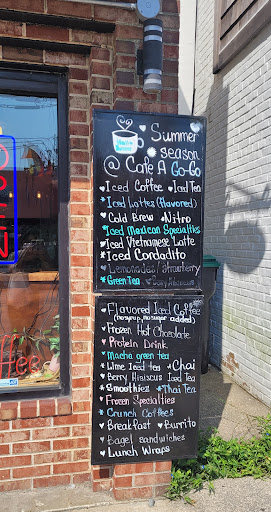 Summer
season
@ Cafe A Go-Go
Iced Coffee • Iced Tea
Iced Lattes (flavored)
Cold Brew • Nitro
Iced Mexican Specialties
Iced Vietnamese Latte
Iced Cordadito
Lemonades/Strawberry
Green Tea
OPEN
Flavored Iced Coffee
(no syrup, no sugar added)
Frozen Hot Chocolate
Protein Drink
Macha green tea
Lime Iced tea • Chai
Berry Hibiscus Iced Tea
Smoothies • Thai Tea
Frozen Specialties
Crunch Coffees
Breakfast Burrito
Bagel sandwiches
Lunch Wraps